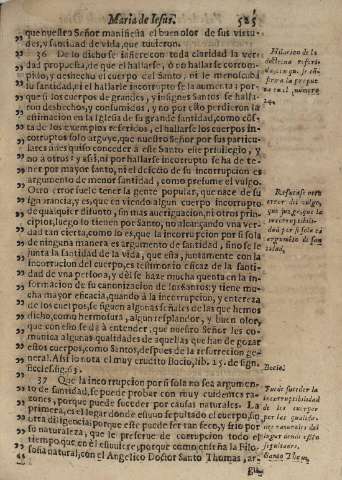 Maria de Iesus. 525
que nuestro Señor manifiesta el buen olor de sus virtu-
des, y santidad de vida, que tuuieron.
36 De lo dicho se infiere con toda claridad la ver-
dad propuesta, de que el hallarse, ò no hallarse corrom-
pido, y deshecho el cuerpo del Santo, ni le menoscaba
su santidad, ni el hallarle incorrupto se la aumenta; por-
que si los cuerpos de grandes, y insignes Santos se halla-
ron deshechos, y consumidos, y no por esto perdieron la
estimacion en la Iglesia de su grande santidad, como cõs-
ta de los exemplos referidos, el hallarse los cuerpos in-
corruptos solo arguye, que nuestro Señor por sus particu-
lares fines quiso conceder à este Santo este priuilegio, y
no à otros; y assi, ni por hallarse incorrupto se ha de te-
ner por mayor santo, ni el defecto de su incorrupcion es
argumento de menor santidad, como presume el vulgo.
Otro error suele tener la gente popular, que nace de su
ignorancia, y es, que en viendo algun cuerpo incorrupto
de qualquier difunto, sin mas aueriguacion, ni otros prin-
cipios, luego lo tienen por Santo, no alcançando vna ver-
dad tan cierta, como lo es, que la incorrupcion por si sola
de ninguna manera es argumento de santidad, sino se le
junta la santidad de la vida, que esta, juntamente con la
incorrupcion del cuerpo, es testimonio eficaz de la santi-
dad de vna persona, y dèl se haze mucha quenta en la in-
formacion de su canonizacion de los Santos, y tiene mu-
cha mayor eficacia, quando à la incorrupcion, y entereza
de los cuerpos, se siguen algunas señales de las que hemos
dicho, como hermosura, algun resplandor, y buen olor,
que con esso se dà à entender, que nuestro Señor les co-
munica algunas qualidades de aquellas que han de gozar
estos cuerpos, como Santos, despues de la resurreccion ge-
neral. Assi lo nota el muy erudito Bocio, lib. 15. de sign.
Eccles. sig. 63.
37 Que la incorrupcion por si sola no sea argumen-
to de santidad, se puede probar con muy euidentes ra-
zones, porque puede suceder por causas naturales. La
primera, es el lugar donde estuuo sepultado el cuerpo, sin
otra diligencia; porque este puede ser tan seco, y frio por
su naturaleza, que le preserue de corrupcion todo el
tiempo que en èl estuuiere, porque como enseña la Filo-
sofia natural, con el Angelico Doctor Santo Thomas, ar-
gu-
Refutase otro
error del vulgo,
que juzga, que la
incorruptibili-
dad por si sola es
argumento de san
tidad.
Bocio.
Puede suceder la
incorruptibilidad
de los cuerpos
por las qualida-
des naturales del
lugar donde estàn
sepultados.
Santo Thom.